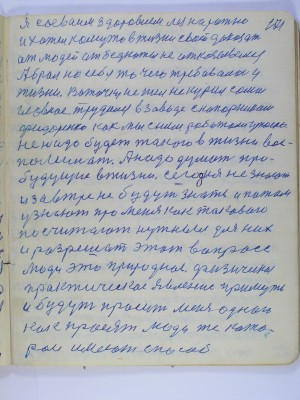 Я своеим здоровием
и хотел кому то в жизни свой доход
от людей а от бедноты не отказывался
А брал на себя то чего требовалось у
жизни. В точку не пил не курил самое
главное трудился в заводе с напорником
как мы с ним работали
не надо будет такого в жизни вос-
поминать. А надо думать про-
будущие в жизни. сегодня не знают
и завтра не будут знать а потом
узнают про меня как такового
посчитают нужным для них
и разрешат этот вопрос
люди это природное физическое
практическое явление примут
и будут просить меня одного
как просят люди те кото-
рои имеют способ